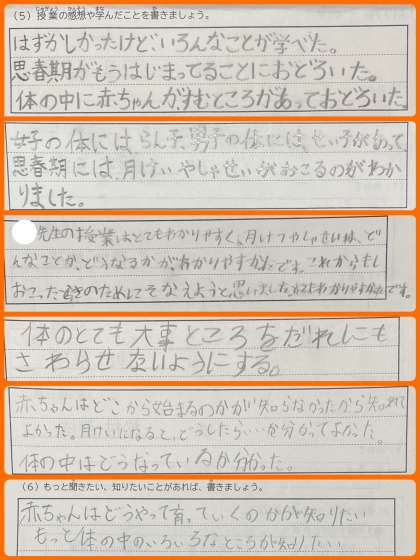 (5) 授業の感想や学んだことを書きましょう。
はずかしかったけど、いろんなことが学べた。
思春期がもうはじまってることにおどろいた。
体の中に赤ちゃんがすむところがあっておどろいた。
女子の体には、らん子、男子の体には、せい子があって、
思春期には、月けいやしゃせいがおこるのがわか
りました。
先生の授業はとてもわかりやすく、月けつやしゃせいは、ど
んなことか、どうなるかが、わかりやすかったです。これからもし
おこったときのためにそなえようと、思いました。とてもわかりやすかったです。
体のとても大事ところをだれにも
さわらせないようにする。
赤ちゃんはどこから始まるのかが知らなかったから知れて
よかった。月けいになると、どうしたらいいか分かってよかった。
体の中はどうなっているか分かった。
(6) もっと聞きたい、知りたいことがあれば、書きましょう。
赤ちゃんはどうやって育っていくのかが知りたい
もっと体の中のいろいろなところが知りたい